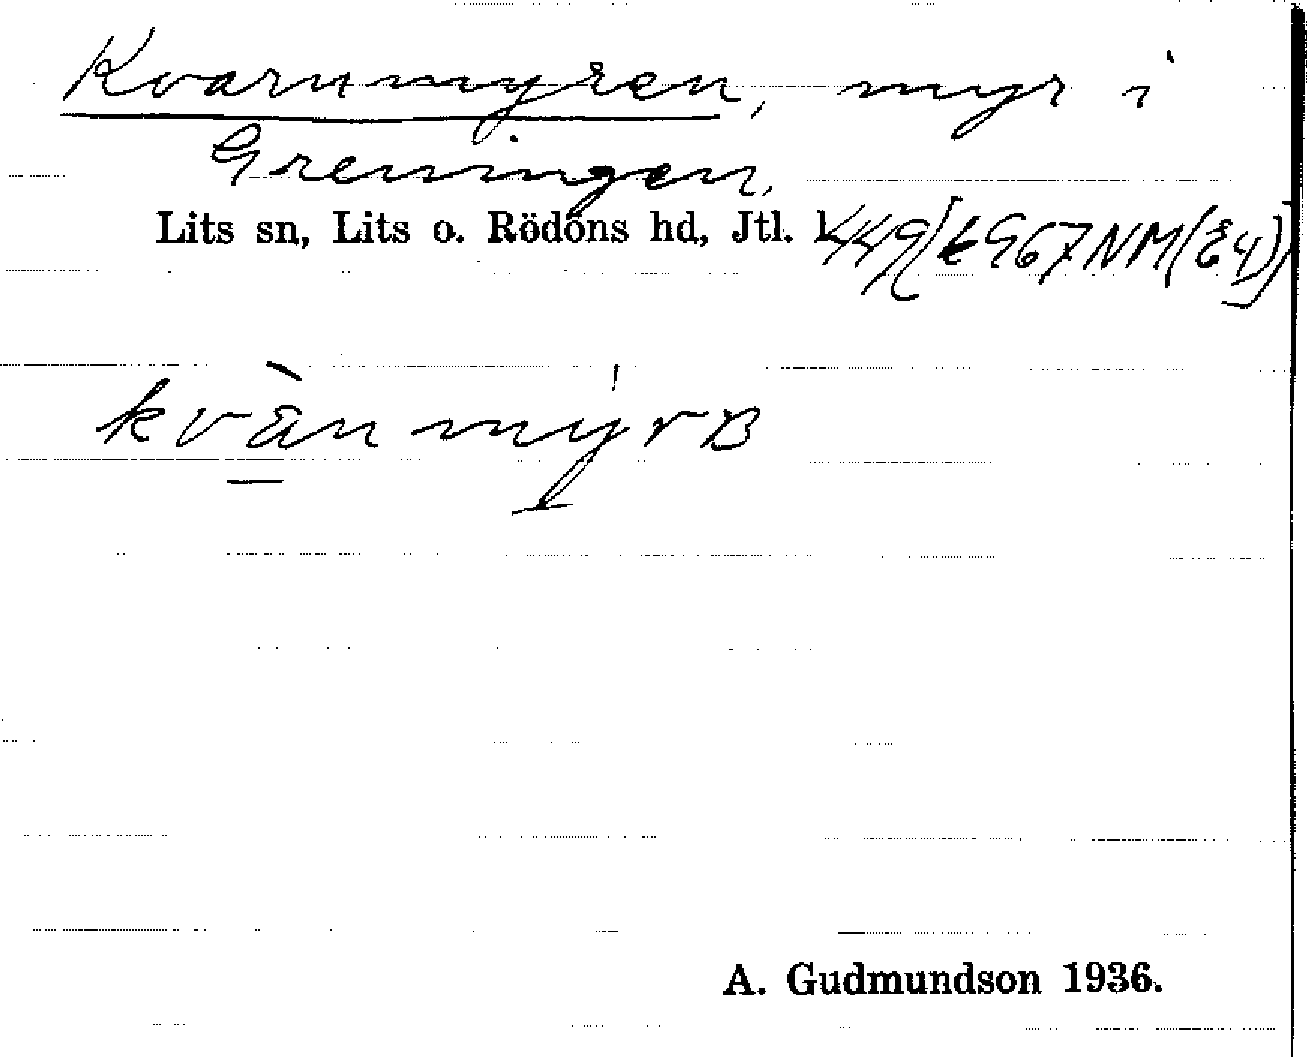 Kvarnmyren, myr i
Greningen.
Lits sn, Lits o. Rödöns hd, Jtl. l.
kvànmyrB
A. Gudmundson 1936.